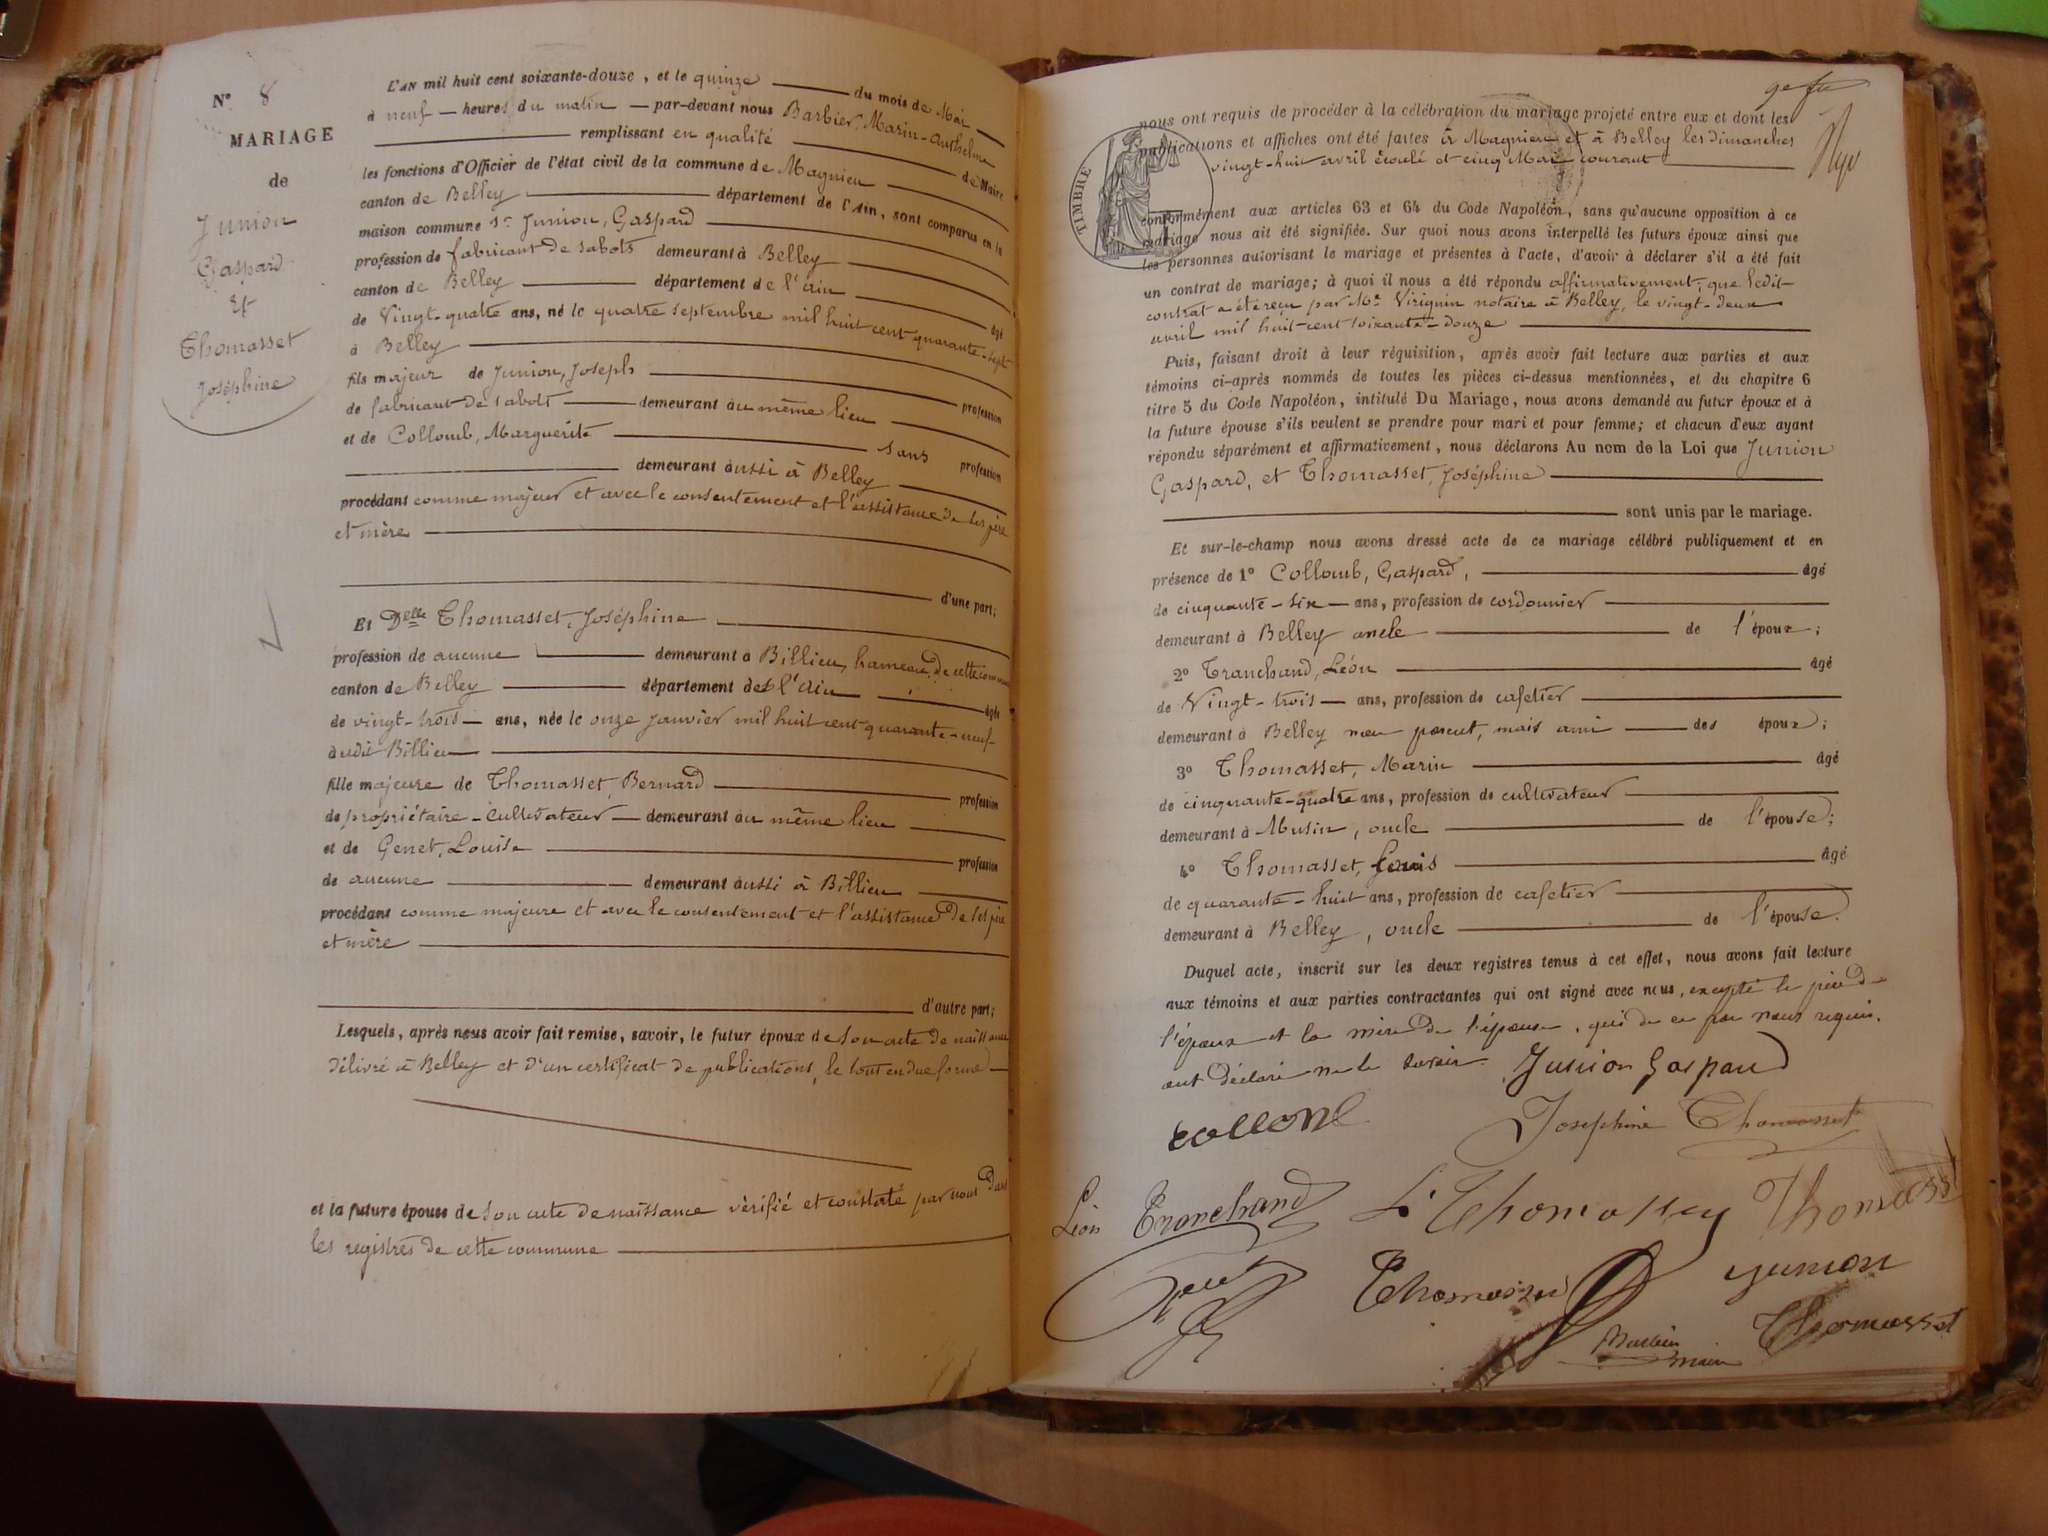 N° 8
MARIAGE
de
Junion
Gaspard
et
Thomasset
Joséphine
L'AN mil huit cent soixante-douze, et le quinze du mois de Mai
à neuf heures du matin par-devant nous Barbier, Marin-Anthelme
remplissant en qualité de Maire
les fonctions d'Officier de l'état civil de la commune de Magnieu
canton de Belley département de l'Ain, sont comparus en la
maison commune Sr Junion, Gaspard
profession de fabricant de sabots demeurant à Belley
canton de Belley département de l'Ain âgé
de Vingt-quatre ans, né le quatre septembre mil huit cent quarante-sept
à Belley
fils majeur de Junion, Joseph profession
de fabricant de sabots demeurant au même lieu
et de Collomb, Marguerite sans profession
demeurant aussi à Belley
procédant comme majeur et avec le consentement et l'assistance de ses père
et mère
d'une part;
Et Delle Thomasset, Joséphine
profession de aucune demeurant à Billieu, hameau de cette commune
canton de Belley département de l'Ain âgée
de vingt-trois ans, née le onze Janvier mil huit cent quarante-neuf
audit Billieu
fille majeure de Thomasset, Bernard profession
de propriétaire-cultivateur demeurant au même lieu
et de Genet, Louise profession
de aucune demeurant aussi à Billieu
procédant comme majeure et avec le consentement et l'assistance de ses père
et mère
d'autre part;
Lesquels, après nous avoir fait remise, savoir, le futur époux de son acte de naissance
délivré à Belley et d'un certificat de publications, le tout en due forme
et la future épouse de son acte de naissance vérifié et constaté par nous dans
les registres de cette commune
nous ont requis de procéder à la célébration du mariage projeté entre eux et dont les
publications et affiches ont été faites à Magnieu et à Belley les dimanches
vingt-huit avril écoulé et cinq Mai courant
TIMBRE
conformément aux articles 63 et 64 du Code Napoléon, sans qu'aucune opposition à ce
mariage nous ait été signifiée. Sur quoi nous avons interpellé les futurs époux ainsi que
les personnes autorisant le mariage et présentes à l'acte, d'avoir à déclarer s'il a été fait
un contrat de mariage; à quoi il nous a été répondu affirmativement, que ledit
contrat a été reçu par Me Viriguin notaire à Belley, le vingt-deux
avril mil huit-cent soixante-douze
Puis, faisant droit à leur réquisition, après avoir fait lecture aux parties et aux
témoins ci-après nommés de toutes les pièces ci-dessus mentionnées, et du chapitre 6
titre 5 du Code Napoléon, intitulé Du Mariage, nous avons demandé au futur époux et à
la future épouse s'ils veulent se prendre pour mari et pour femme; et chacun d'eux ayant
répondu séparément et affirmativement, nous déclarons Au nom de la Loi que Junion
Gaspard, et Thomasset, Joséphine
sont unis par le mariage.
Et sur-le-champ nous avons dressé acte de ce mariage célébré publiquement et en
présence de 1° Collomb, Gaspard, âgé
de cinquante-six ans, profession de cordonnier
demeurant à Belley oncle de l'époux;
2° Tranchand, Léon âgé
de Vingt-trois ans, profession de cafetier
demeurant à Belley non parent, mais ami des époux;
3° Thomasset, Marin âgé
de cinquante-quatre ans, profession de cultivateur
demeurant à Musin, oncle de l'épouse;
4° Thomasset, Louis âgé
de quarante-huit ans, profession de cafetier
demeurant à Belley, oncle de l'épouse.
Duquel acte, inscrit sur les deux registres tenus à cet effet, nous avons fait lecture
aux témoins et aux parties contractantes qui ont signé avec nous, excepté le père de
l'époux et la mère de l'épouse, qui de ce par nous requis,
ont déclaré ne le savoir. Junion Gaspard
Collomb Josephine Thomasset
Léon Tranchand L. Thomasset Thomasset
Thomasset Junion
Barbier maire Thomasset